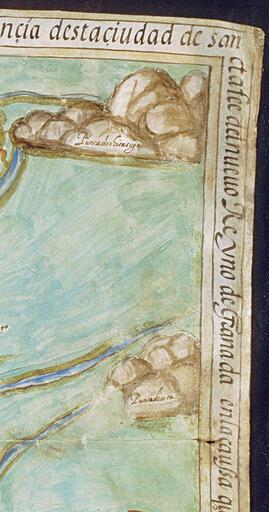 nçia destaçiudad de san
ctafe del nueuo Reyno de Granada en la caussa qu
Punta de
Punta de